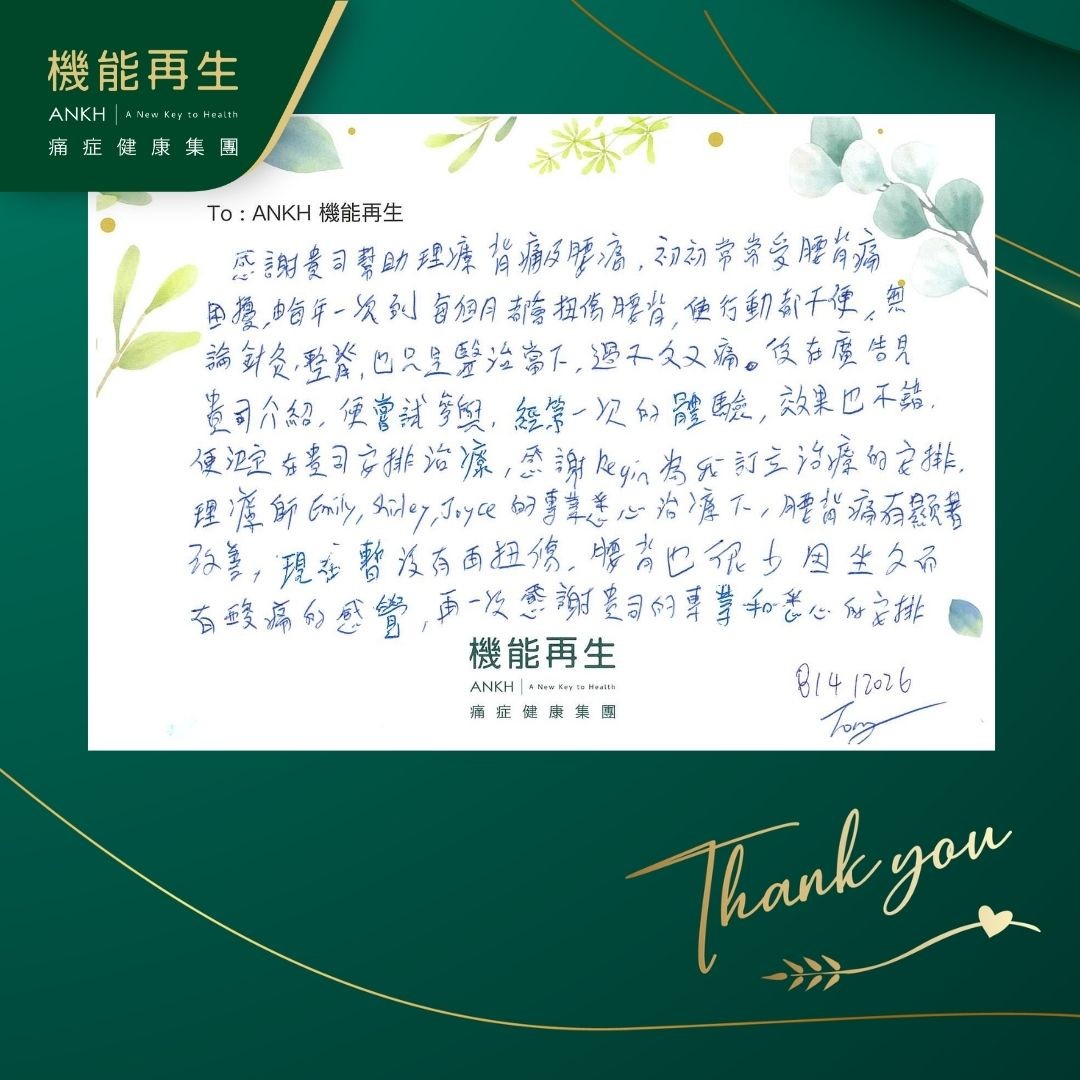 機能再生
ANKH | A New Key to Health
痛症健康集團
To : ANKH 機能再生
感謝貴司幫助理療背痛及腰痛，初初常常受腰背痛
困擾，由每年一次到每個月都會扭傷腰背，使行動都不便，無
論針灸，整脊，也只是醫治當下，過不久又痛。後在廣告見
貴司介紹，便嘗試參與，經第一次的體驗，效果也不錯，
便決定在貴司安排治療，感謝Regin為我訂立治療的安排，
理療師Emily, Shirley, Joyce的專業悉心治療下，腰背痛有顯著
改善，現在暫沒有再扭傷，腰背也很少因坐久而
有酸痛的感覺，再一次感謝貴司的專業和悉心的安排
機能再生
ANKH | A New Key to Health
痛症健康集團
8/4/2026
Tony
Thank you